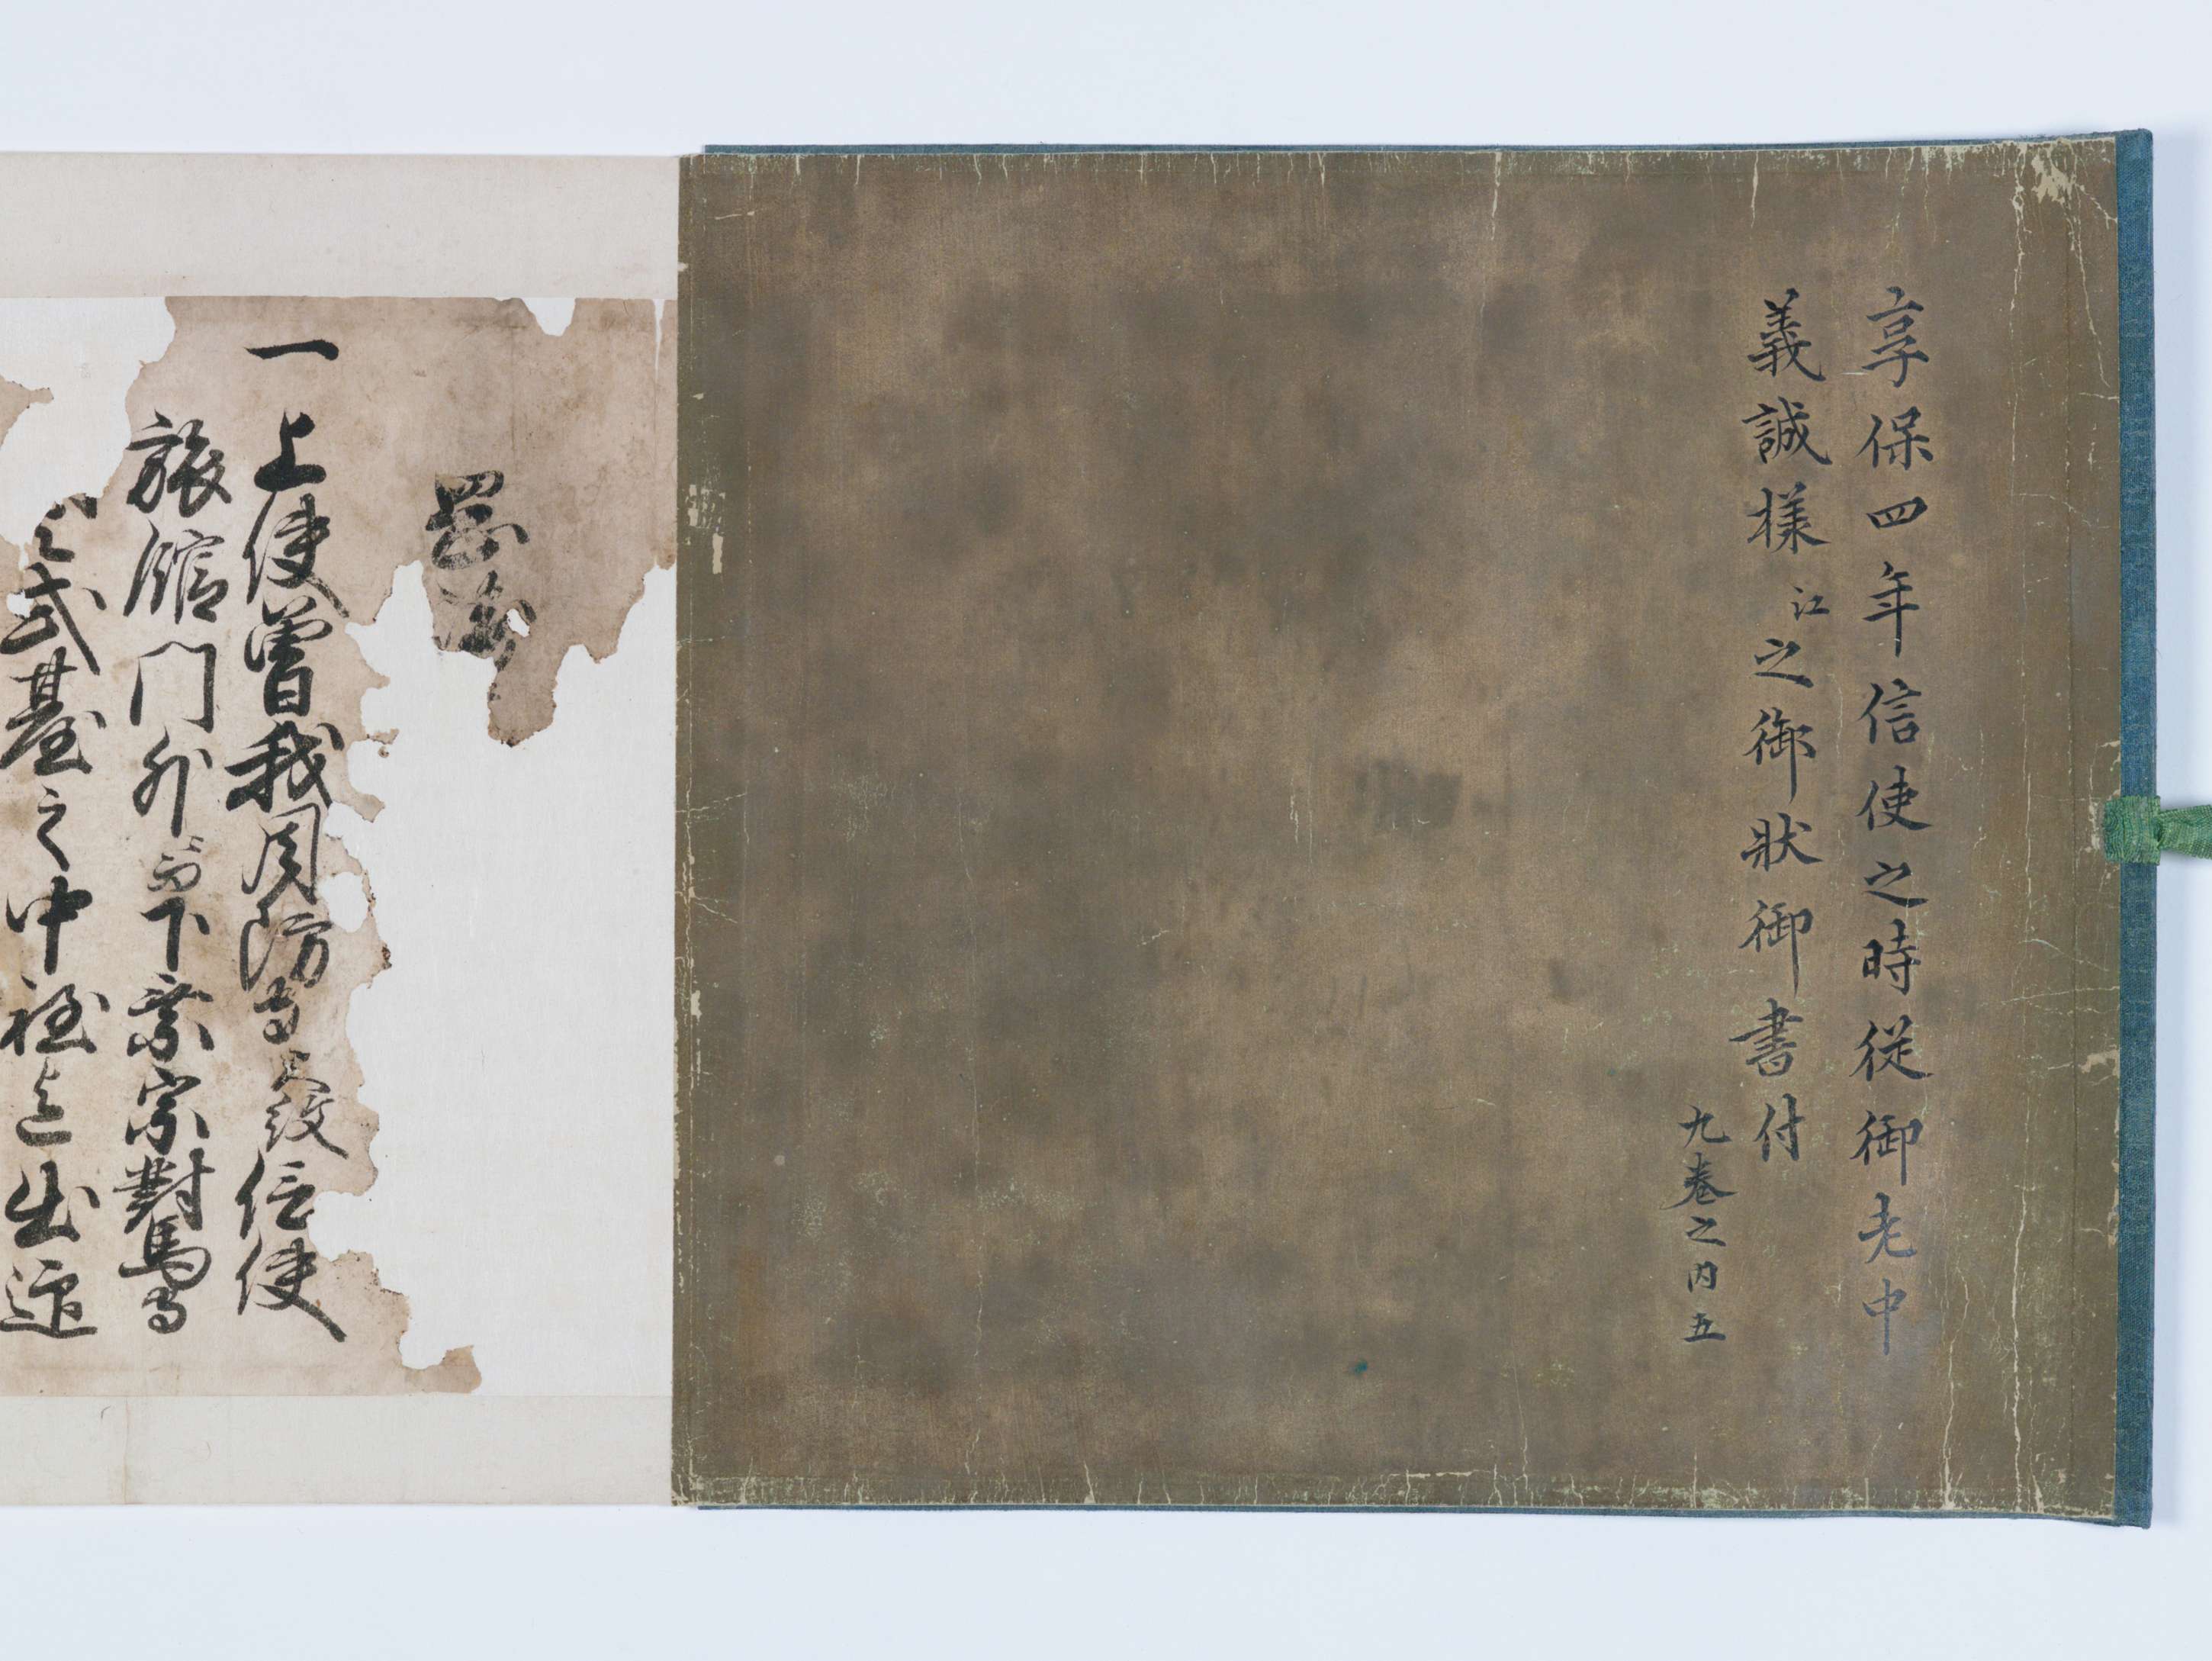 享保四年信使之時従御老中
義誠様江之御状御書付
九巻之内五
覚
一上使曽我周防守 信使
旅舘門外 下乗宗對馬守
式臺之中程迄出迎